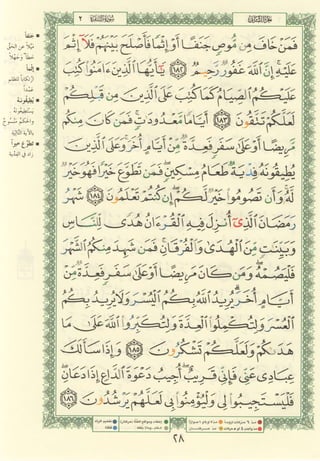 الجزء الثاني ٢ سورة البقرة
فَمَنْ خَافَ مِن مُّوصٍ جَنَفًا أَوْ إِثْمًا فَأَصْلَحَ بَيْنَهُمْ فَلَآ إِثْمَ
عَلَيْهِ ۚ إِنَّ ٱللَّهَ غَفُورٌ رَّحِيمٌ ﴿١٨٢﴾ يَٰٓأَيُّهَا ٱلَّذِينَ ءَامَنُوا۟ كُتِبَ
عَلَيْكُمُ ٱلصِّيَامُ كَمَا كُتِبَ عَلَى ٱلَّذِينَ مِن قَبْلِكُمْ
لَعَلَّكُمْ تَتَّقُونَ ﴿١٨٣﴾ أَيَّامًا مَّعْدُودَٰتٍ ۚ فَمَن كَانَ مِنكُم
مَّرِيضًا أَوْ عَلَىٰ سَفَرٍ فَعِدَّةٌ مِّنْ أَيَّامٍ أُخَرَ ۚ وَعَلَى ٱلَّذِينَ
يُطِيقُونَهُۥ فِدْيَةٌ طَعَامُ مِسْكِينٍ ۖ فَمَن تَطَوَّعَ خَيْرًا فَهُوَ خَيْرٌ
لَّهُۥ ۚ وَأَن تَصُومُوا۟ خَيْرٌ لَّكُمْ ۖ إِن كُنتُمْ تَعْلَمُونَ ﴿١٨٤﴾ شَهْرُ
رَمَضَانَ ٱلَّذِىٓ أُنزِلَ فِيهِ ٱلْقُرْءَانُ هُدًى لِّلنَّاسِ
وَبَيِّنَٰتٍ مِّنَ ٱلْهُدَىٰ وَٱلْفُرْقَانِ ۚ فَمَن شَهِدَ مِنكُمُ ٱلشَّهْرَ
فَلْيَصُمْهُ ۖ وَمَن كَانَ مَرِيضًا أَوْ عَلَىٰ سَفَرٍ فَعِدَّةٌ مِّنْ
أَيَّامٍ أُخَرَ ۗ يُرِيدُ ٱللَّهُ بِكُمُ ٱلْيُسْرَ وَلَا يُرِيدُ بِكُمُ
ٱلْعُسْرَ وَلِتُكْمِلُوا۟ ٱلْعِدَّةَ وَلِتُكَبِّرُوا۟ ٱللَّهَ عَلَىٰ مَا
هَدَىٰكُمْ وَلَعَلَّكُمْ تَشْكُرُونَ ﴿١٨٥﴾ وَإِذَا سَأَلَكَ
عِبَادِى عَنِّى فَإِنِّى قَرِيبٌ ۖ أُجِيبُ دَعْوَةَ ٱلدَّاعِ إِذَا دَعَانِ ۖ
فَلْيَسْتَجِيبُوا۟ لِى وَلْيُؤْمِنُوا۟ بِى لَعَلَّهُمْ يَرْشُدُونَ ﴿١٨٦﴾
٢٨